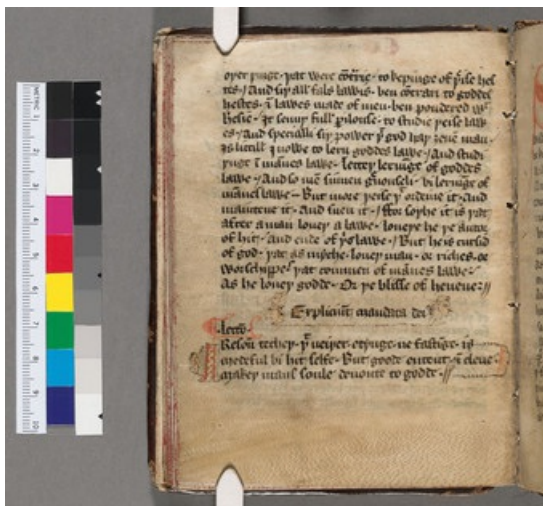 oþer þinge· þat were cōtrie· to kepinge of þise hes
tes / And siþ all fals lawis· ben cōtrari to goddes
hestes· & lawes made of men· ben
heſie· It semiþ full perilouse· to studie þeise law
es / And specialli siþ power þt god haþ ȝeue man·
is litill I nowe to lern goddes lawe· / And studi
ynge I manes lawe· letteþ lernige of goddes
lawe· / And so me sūmen bi lernige of
mānes lawe – But more þeise þt ordeine it· And
mainteine it· And suen it· / ffor soþe it is þat
after a man loueþ a lawe· loueþ he þe autor
of hit· And ende of þt lawe· / But he is cursid
of god· þat as myche· loueþ man· or riches· or
worschippe þat commen of manes lawe·
As he loueþ godde· Or þe blisse of heuene· //
Expliciūt mandata dei
Reson techeþ· þt neiþer etynge· ne fastige· is
medeful bi hit selfe· But goode entent· & clene
makeþ mans soule deuoute to godde· //
METRIC 1
2
3
4
5
6
7
8
9
10